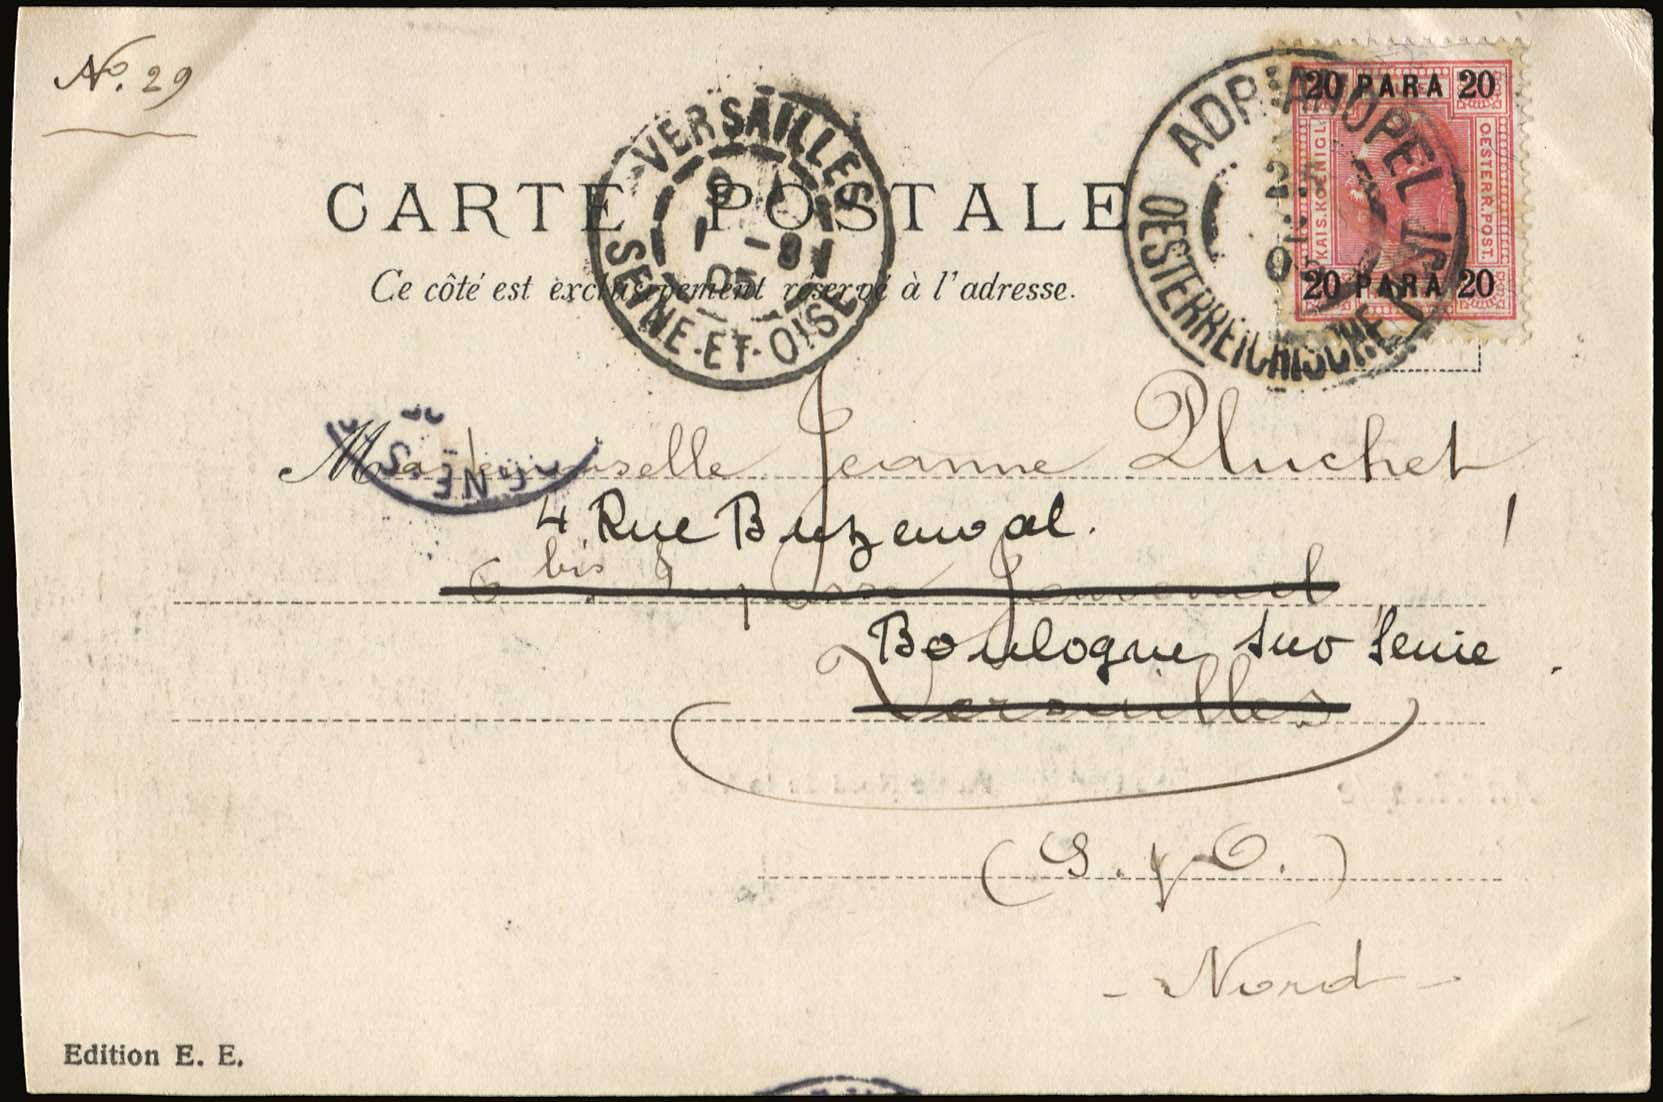 No. 29
VERSAILLES
9
1 -8
05
SEINE-ET-OISE
ADRIANOPEL
OESTERREICHISCHE POST
20 PARA 20
KAIS.KOENIGL.
OESTERR.POST.
20 PARA 20
CARTE POSTALE
Ce côté est exclusivement réservé à l'adresse.
Mademoiselle Jeanne Pluchet
4 Rue Buzenval.
6 bis, Impasse
Boulogne sur Seine
Versailles
(S. & O.)
- Nord -
Edition E. E.